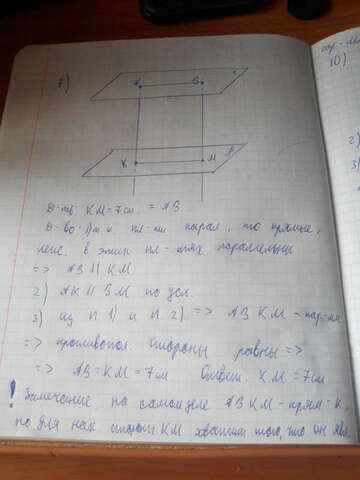 7)
A B
К М
Д-ть: КМ = 7см. = АВ
Д-во: 1) т.к пл-ти парал, то прямые,
леж. в этих пл-тях параллельны
=> АВ || КМ
2) АК || ВМ по усл.
3) из п 1) и п 2) => АВ КМ - пар-мм
=> противопол стороны равны =>
=> АВ = КМ = 7см. Ответ. КМ = 7см
! Замечание на самом деле АВ КМ - прям-к,
но для нах. стороны КМ хватит того, что он
10)
2)
3)